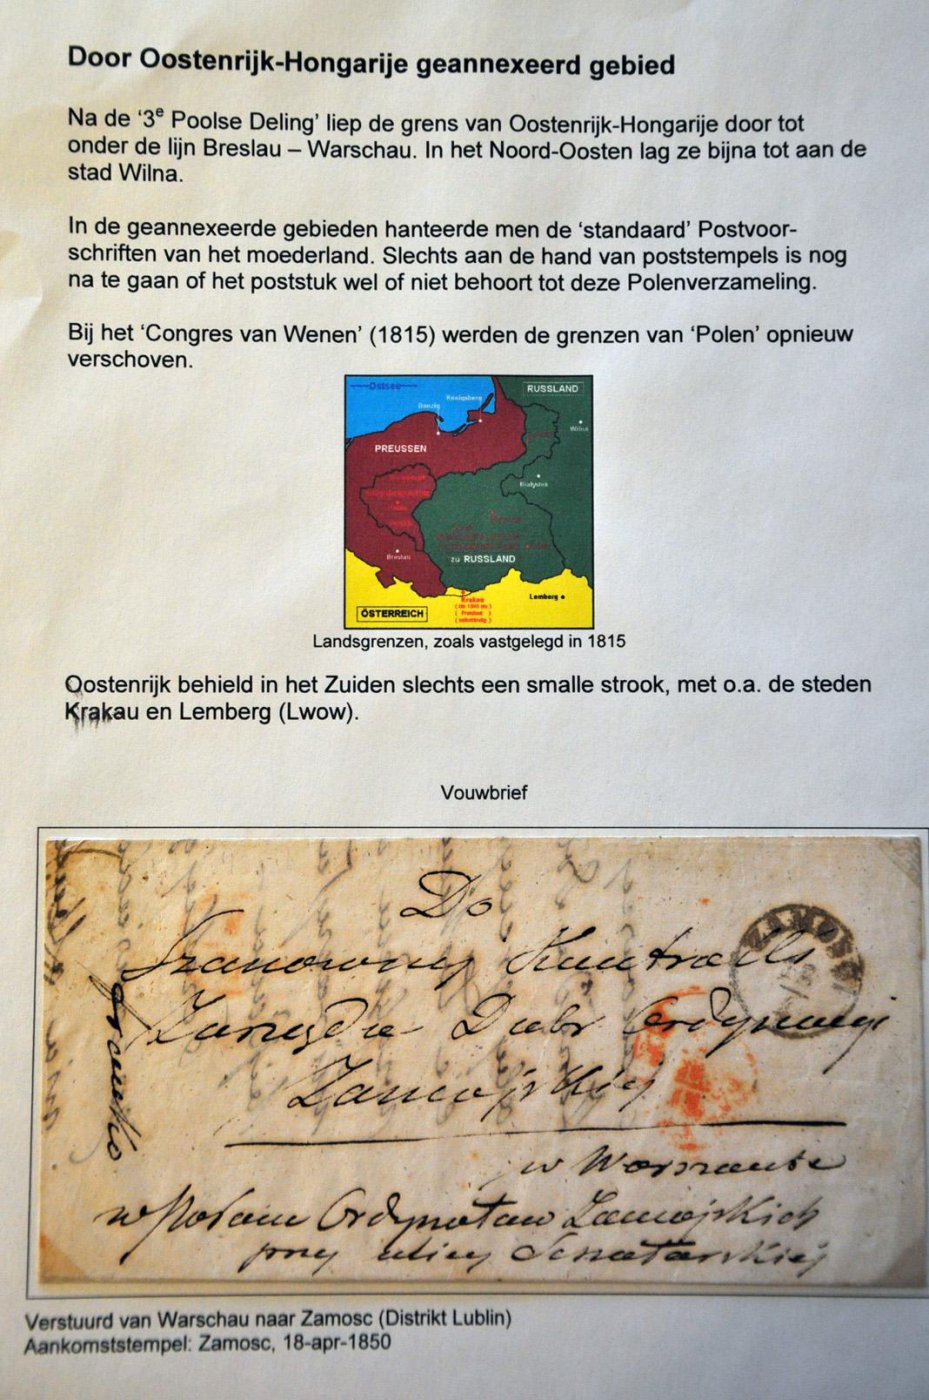 Door Oostenrijk-Hongarije geannexeerd gebied
Na de ‘3e Poolse Deling’ liep de grens van Oostenrijk-Hongarije door tot
onder de lijn Breslau – Warschau. In het Noord-Oosten lag ze bijna tot aan de
stad Wilna.
In de geannexeerde gebieden hanteerde men de ‘standaard’ Postvoor-
schriften van het moederland. Slechts aan de hand van poststempels is nog
na te gaan of het poststuk wel of niet behoort tot deze Polenverzameling.
Bij het ‘Congres van Wenen’ (1815) werden de grenzen van ‘Polen’ opnieuw
verschoven.
Ostsee
RUSSLAND
Königsberg
Danzig
Wilna
PREUSSEN
Bialystok
Breslau
zu RUSSLAND
Krakau
Lemberg
ÖSTERREICH
Landsgrenzen, zoals vastgelegd in 1815
Oostenrijk behield in het Zuiden slechts een smalle strook, met o.a. de steden
Krakau en Lemberg (Lwow).
Vouwbrief
Do
ZAMOSC
Szanowney Kontrolli
Zarządu Dóbr Ordynacyi
Zamoyskiey
franko
w Warszawie
w Pałacu Ordynatów Zamoyskich
przy ulicy Senatorskiey
Verstuurd van Warschau naar Zamosc (Distrikt Lublin)
Aankomststempel: Zamosc, 18-apr-1850